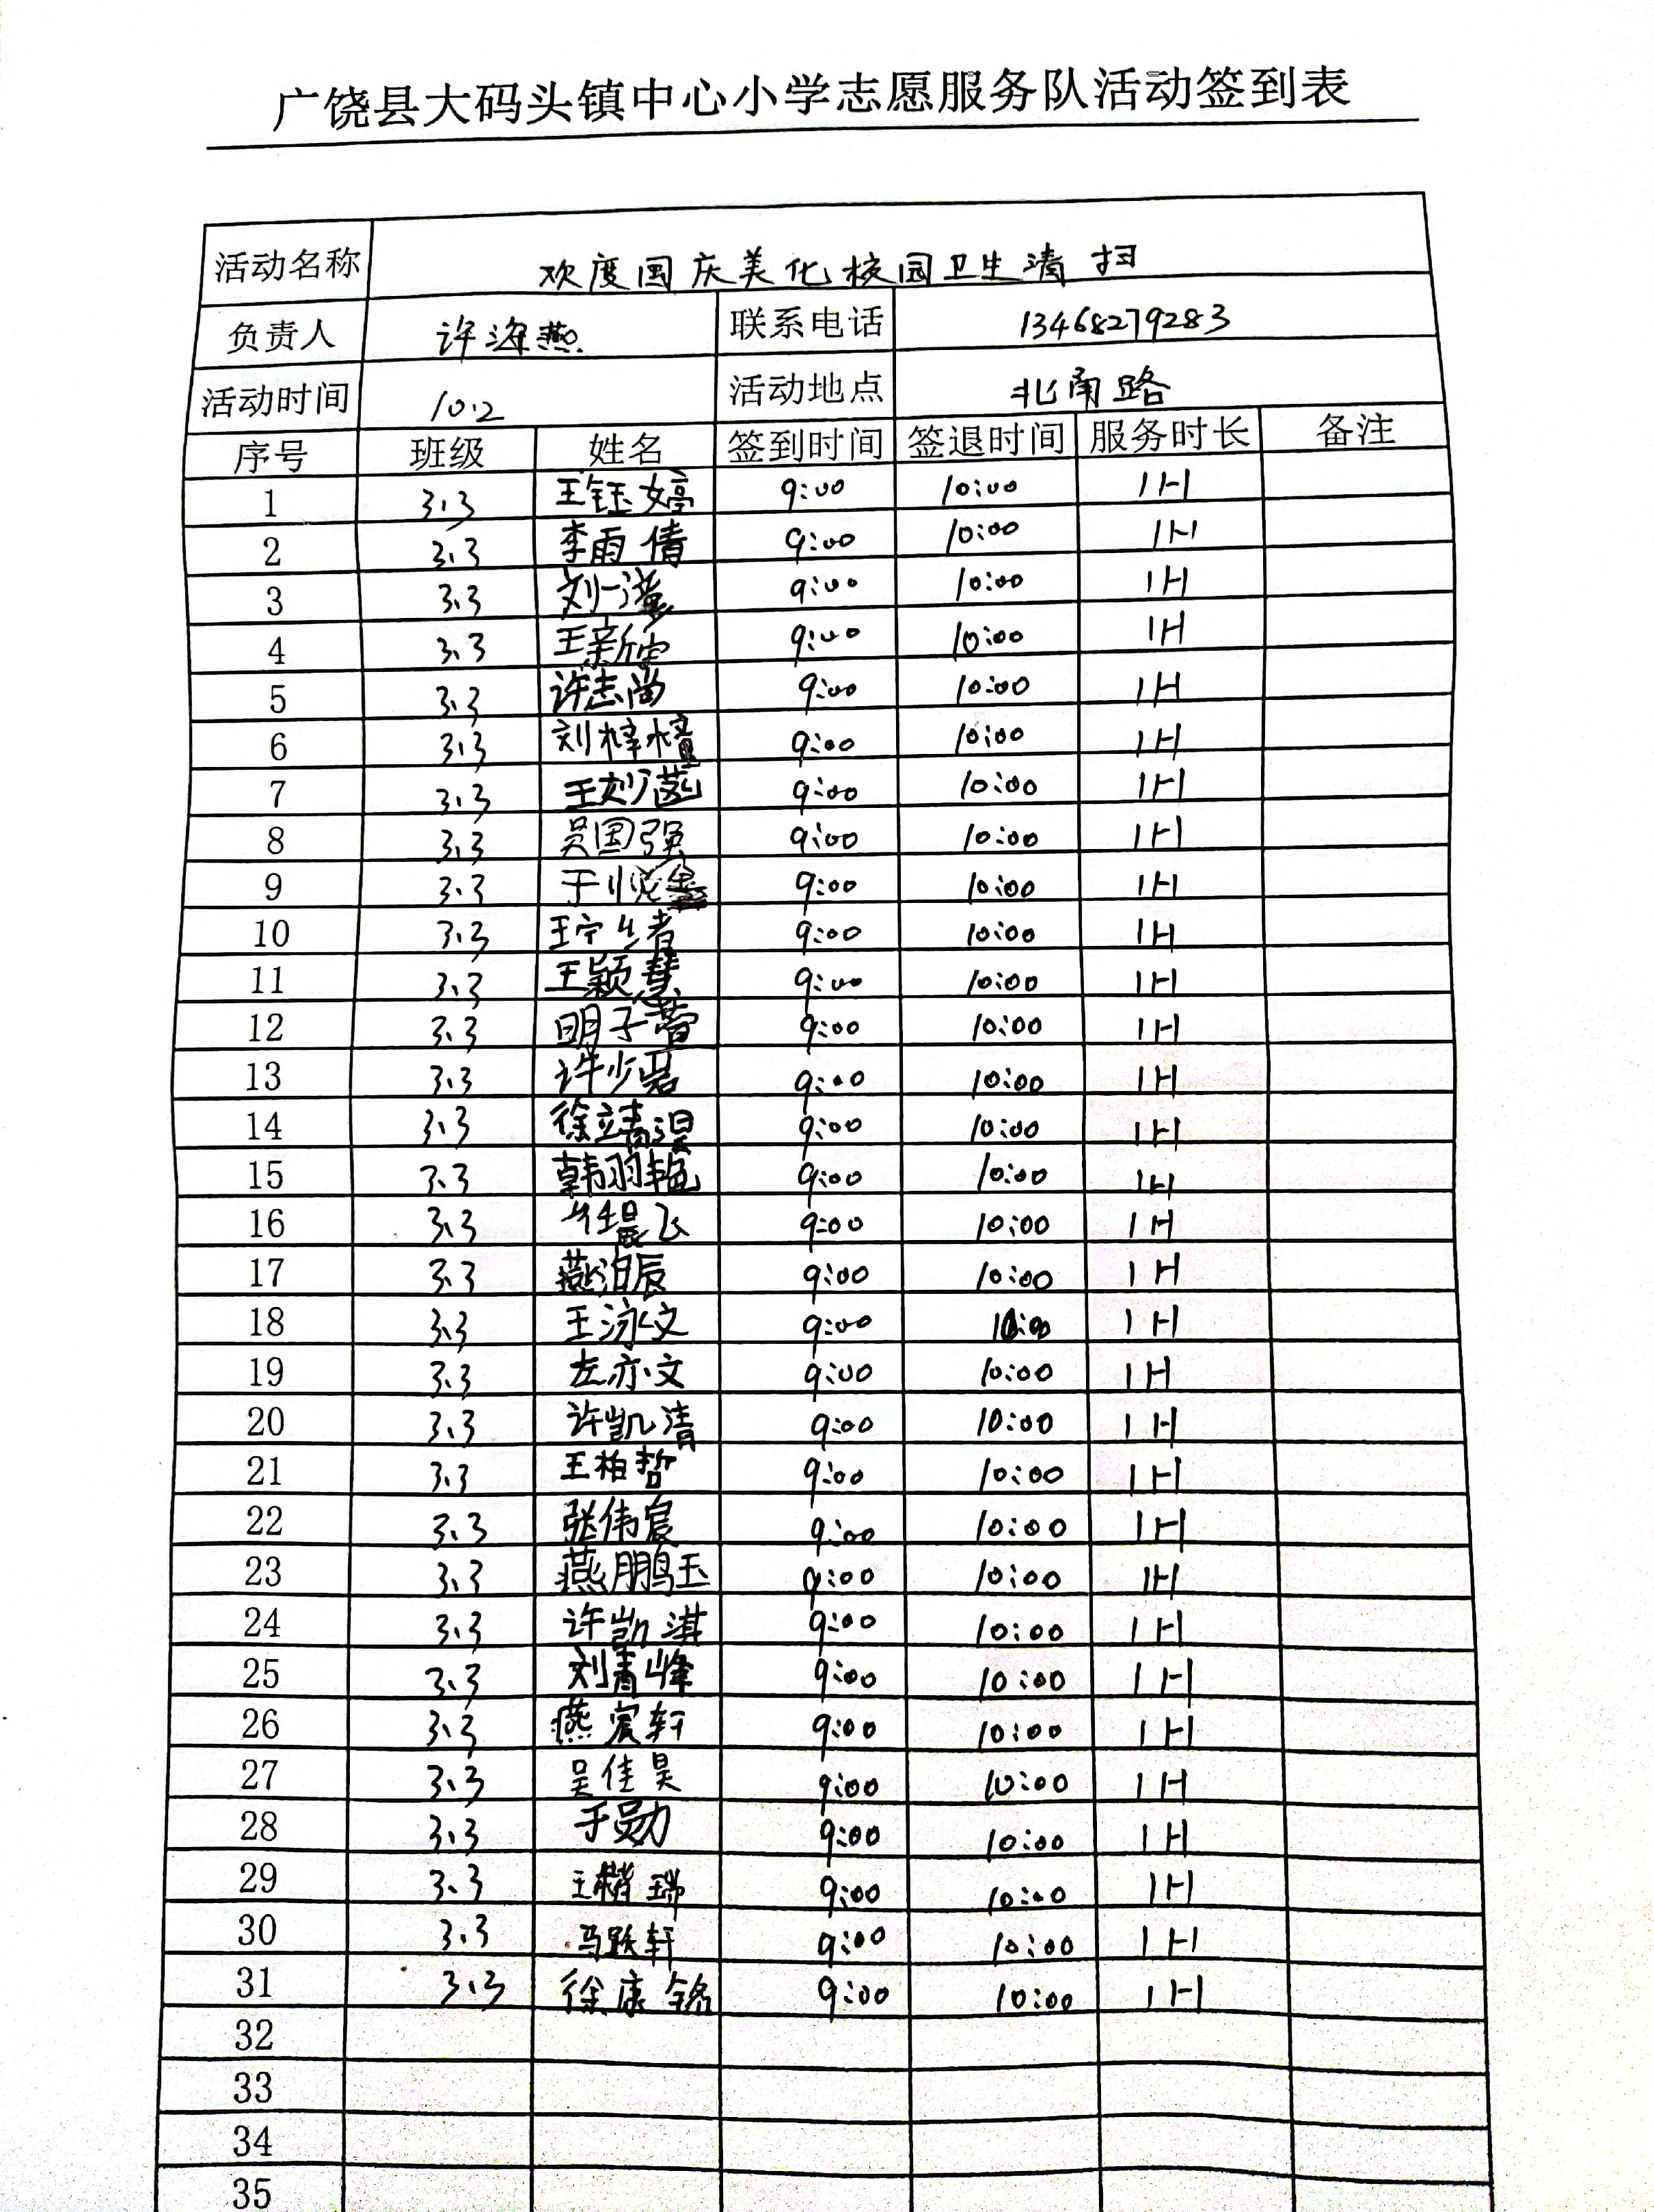 广饶县大码头镇中心小学志愿服务队活动签到表
活动名称 欢度国庆美化校园卫生清扫
负责人 许海燕 联系电话 13468279283
活动时间 10.2 活动地点 北南路
序号 班级 姓名 签到时间 签退时间 服务时长 备注
1 3.3 王钰婷 9:00 10:00 1H
2 3.3 李雨倩 9:00 10:00 1H
3 3.3 刘一 9:00 10:00 1H
4 3.3 王新 9:00 10:00 1H
5 3.3 许志尚 9:00 10:00 1H
6 3.3 刘梓檀 9:00 10:00 1H
7 3.3 王刘菡 9:00 10:00 1H
8 3.3 吴国强 9:00 10:00 1H
9 3.3 于悦鑫 9:00 10:00 1H
10 3.3 王宁 9:00 10:00 1H
11 3.3 王颖慧 9:00 10:00 1H
12 3.3 明子蕾 9:00 10:00 1H
13 3.3 许少君 9:00 10:00 1H
14 3.3 徐靖 9:00 10:00 1H
15 3.3 韩羽艳 9:00 10:00 1H
16 3.3 飞 9:00 10:00 1H
17 3.3 燕泊辰 9:00 10:00 1H
18 3.3 王泳文 9:00 10:00 1H
19 3.3 左亦文 9:00 10:00 1H
20 3.3 许凯清 9:00 10:00 1H
21 3.3 王柏哲 9:00 10:00 1H
22 3.3 张伟宸 9:00 10:00 1H
23 3.3 燕鹏玉 9:00 10:00 1H
24 3.3 许凯淇 9:00 10:00 1H
25 3.3 刘青峰 9:00 10:00 1H
26 3.3 燕宸轩 9:00 10:00 1H
27 3.3 吴佳昊 9:00 10:00 1H
28 3.3 于勋 9:00 10:00 1H
29 3.3 王楷瑞 9:00 10:00 1H
30 3.3 马跃轩 9:00 10:00 1H
31 3.3 徐康铭 9:00 10:00 1H
32
33
34
35